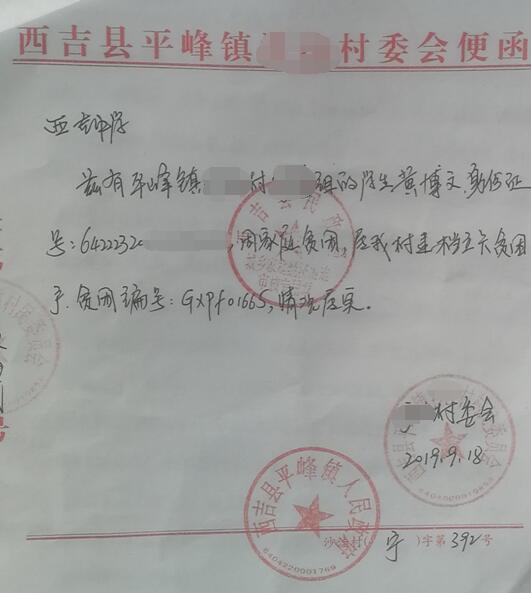 西吉县平峰镇 村委会便函
西吉中学
兹有平峰镇 村 组的学生黄博文,身份证
号:6422232 ,因家庭贫困,是我村建档立卡贫困
户.贫困编号:GXPf01665,情况属实。
村委会
2019.9.18
西吉县平峰镇人民政府
6404220001769
沙洼村( 宁 )字第392号